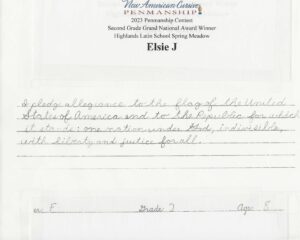 New American Cursive
PENMANSHIP
2023 Penmanship Contest
Second Grade Grand National Award Winner
Highlands Latin School Spring Meadow
Elsie J
I pledge allegiance to the flag of the United
States of America and to the Republic for which
it stands: one nation under God, indivisible,
with liberty and justice for all.
Grade 2 Age 8